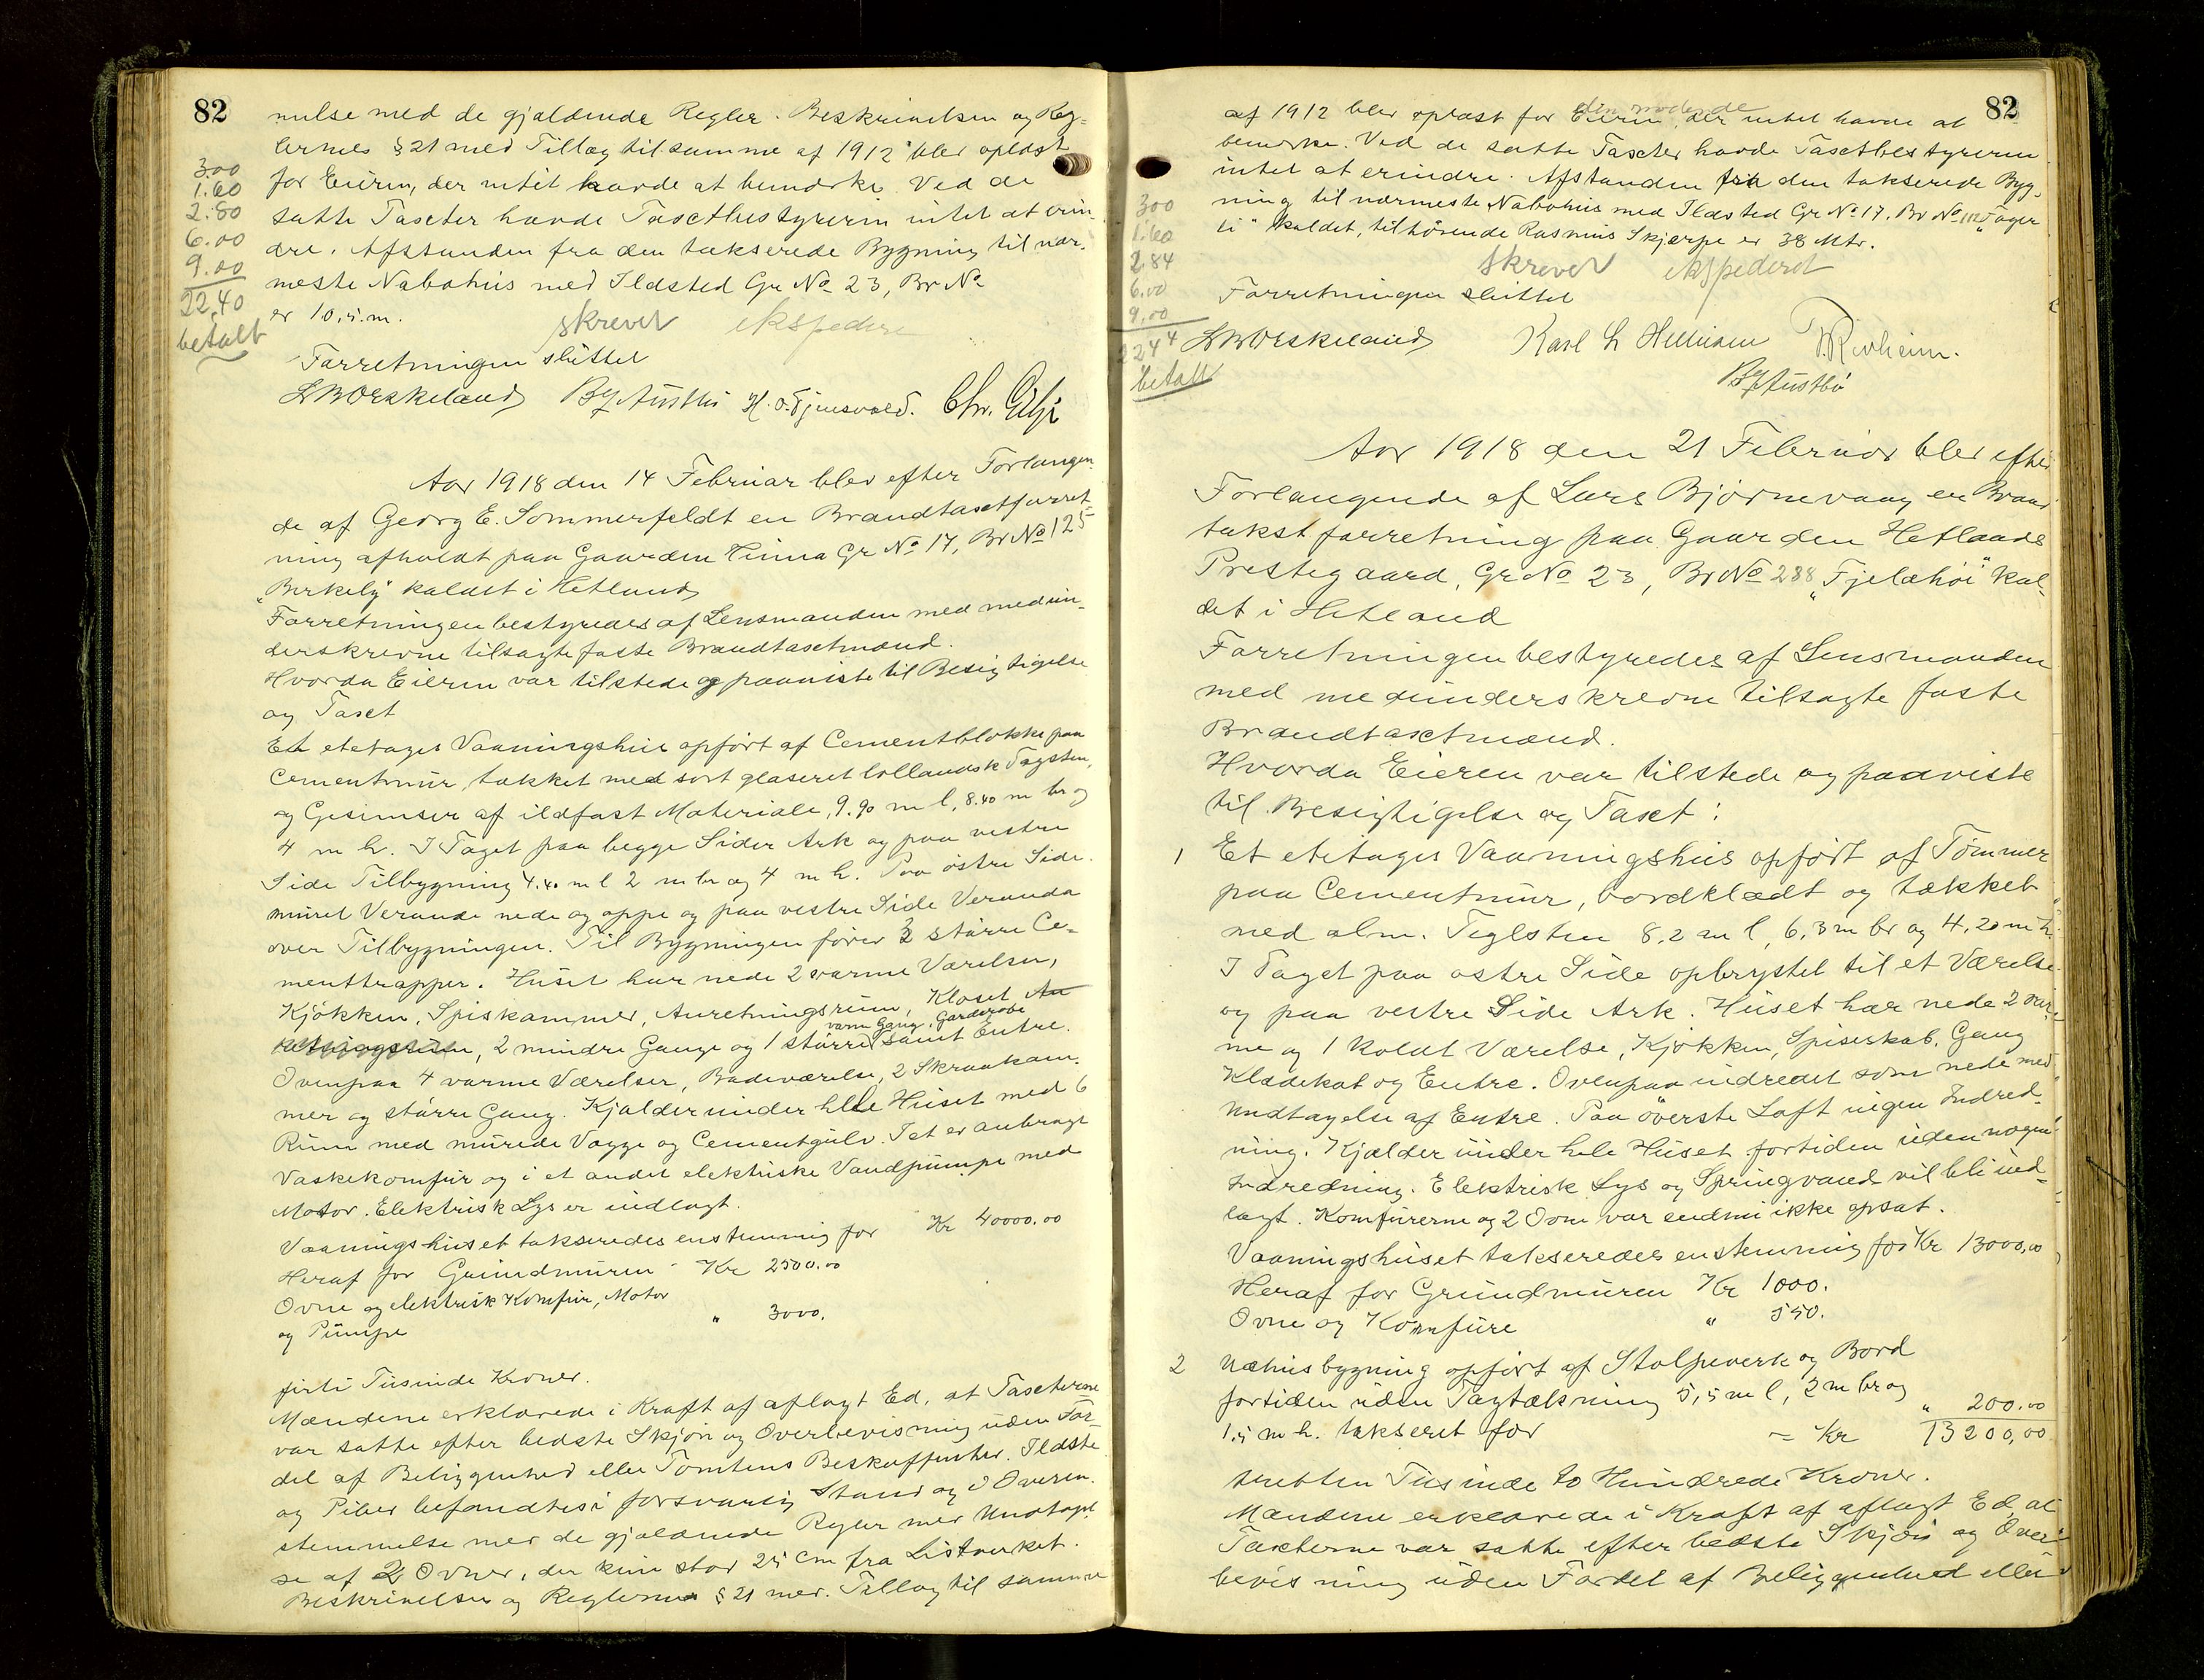 82
nelse med de gjældende Regler. Beskrivelsen og Reg-
lernes § 21 med Tillæg til samme af 1912 blev oplæst
for Eieren, der intet havde at bemerke. Ved de
satte Taxter havde Taxtbestyreren intet at erin-
dre. Afstanden fra den takserede Bygning til nær-
meste Nabohus med Ildsted Gr No 23, Br No
er 10,5 m.
3.00
1.60
2.80
6.00
9.00
22,40
betalt
skrevet ekspedere
Forretningen sluttet
Chr. Gilje
Aar 1918 den 14 Februar blev efter Forlangen-
de af Georg E. Sommerfeldt en Brandtaxtforret-
ning afholdt paa Gaarden Hinna Gr No 17, Br No 125
"Birkely" kaldet i Hetland
Forretningen bestyredes af Lensmanden med medun-
derskrevne tilsagte faste Brandtaxtmænd.
Hvorda Eieren var tilstede og paaviste til Besigtigelse
og Taxt
Et etetages Vaaningshus opført af Cementblokke paa
Cementmur, tækket med sort glaseret hollandsk Tagsten,
og Gesimser af ildfast Materiale, 9.90 m l, 8.40 m br og
4 m h. I Taget paa begge Sider Ark og paa vestre
Side Tilbygning 4.40 m l 2 m br og 4 m h. Paa østre Side
muret Veranda nede og oppe og paa vestre Side Veranda
over Tilbygningen. Til Bygningen fører 2 større Ce-
menttrapper. Huset har nede 2 varme Værelser,
Kjøkken, Spiskammer, Anretningsrum, Kloset, An
retningsrum, 2 mindre Gange og 1 større varm Gang, Garderobe samt Entre.
Ovenpaa 4 varme Værelser, Badeværelse, 2 Skraakam-
mer og større Gang. Kjælder under hele Huset med 6
Rum med murede Vægge og Cementgulv. I et er anbragt
Vaskekomfur og i et andet elektriske Vandpumpe med
Motor. Elektrisk Lys er indlagt.
Vaaningshuset takseredes enstemmig for Kr 40000.00
Heraf for Grundmuren - Kr 2500.00
Ovne og elektrisk Komfur, Motor
og Pumpe " 3000.
firti Tusinde Kroner.
Mændene erklærede i Kraft af aflagt Ed, at Taxterne
var satte efter bedste Skjøn og Overbevisning uden For-
del af Beliggenhed eller Tomtens Beskaffenhed. Ildste
og Piber befandtes i forsvarlig Stand og i Overen-
stemmelse med de gjældende Regler med Undtagel-
se af 2 Ovner, der kun staar 25 cm fra Listverket.
Beskrivelsen og Reglernes § 21 med Tillæg til samme
82
af 1912 blev oplæst for Eieren den mødende der intet havde at
bemerke. Ved de satte Taxter havde Taxtbestyreren
intet at erindre. Afstanden fra den takserede Byg-
ning til nærmeste Nabohus med Ildsted Gr No 17, Br No 112 "Fager
li" kaldet, tilhørende Rasmus Skjærpe er 38 Mtr.
3.00
1.60
2.84
6.00
9.00
22 44
betalt
skrevet ekspederet
Forretningen sluttet
Aar 1918 den 21 Februar blev efter
Forlangende af Lars Bjørnevaag en Brand
takstforretning paa Gaarden Hetlands
Prestegaard, Gr No 23, Br No 288 "Fjelæhøi" kal-
det i Hetland
Forretningen bestyredes af Lensmanden
med medunderskrevne tilsagte faste
Brandtaxtmænd.
Hvorda Eieren var tilstede og paaviste
til Besigtigelse og Taxt:
1 Et etetages Vaaningshus opført af Tømmer
paa Cementmur, bordklædt og tækket
med alm. Teglsten 8,2 m l, 6,3 m br og 4,20 m h.
I Taget paa østre Side opbrystet til et Værelse
og paa vestre Side Ark. Huset har nede 2 var-
me og 1 koldt Værelse, Kjøkken, Spiserkab, Gang
Klædekot og Entre. Ovenpaa indredet som nede med
Undtagelse af Entre. Paa øverste Loft ingen Indred-
ning. Kjælder under hele Huset fortiden uden nogen
Indredning. Elektrisk Lys og Springvand vil bli ind-
lagt. Komfurerne og 2 Ovne var endnu ikke opsat.
Vaaningshuset takseredes enstemmig for Kr 13000,00
Heraf for Grundmuren Kr 1000.
Ovne og Komfure " 550.
2 Udhusbygning opført af Stolpeverk og Bord
fortiden uden Tagtækning 5,5 m l, 2 m br og
1.5 m h. takseret for " 200.00
= Kr 13200,00
tretten Tusinde to Hundrede Kroner.
Mændene erklærede i Kraft af aflagt Ed, at
Taxterne var satte efter bedste Skjøn og Over-
bevisning uden Fordel af Beliggenhed eller